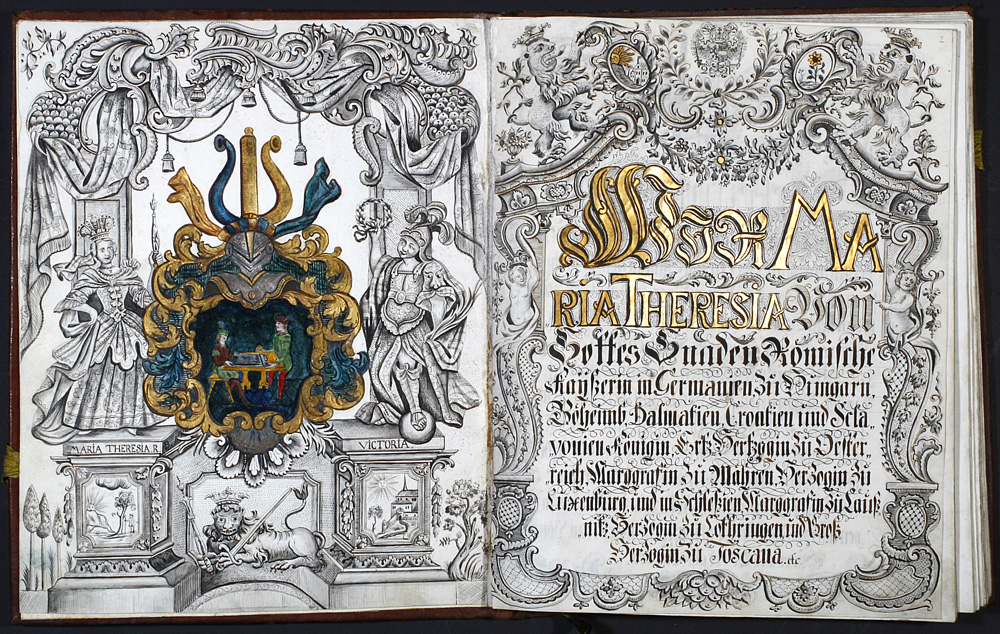 MARIA THERESIA. R.
VICTORIA
Wir MA
RIA THERESIA Von
Gottes Gnaden Römische
Kayßerin in Germanien, Zu Hungarn,
Böheimb, Dalmatien, Croatien und Scla„
vonien Königin, Ertz Hertzogin Zu Oester„
reich, Marggrafin Zu Mähren, Herzogin Zu
Luxemburg, und in Schlesien, Marggrafin Zu Lauß„
nitz, Herzogin Zu Lothringen und Groß
Herzogin Zu Toscana. etc